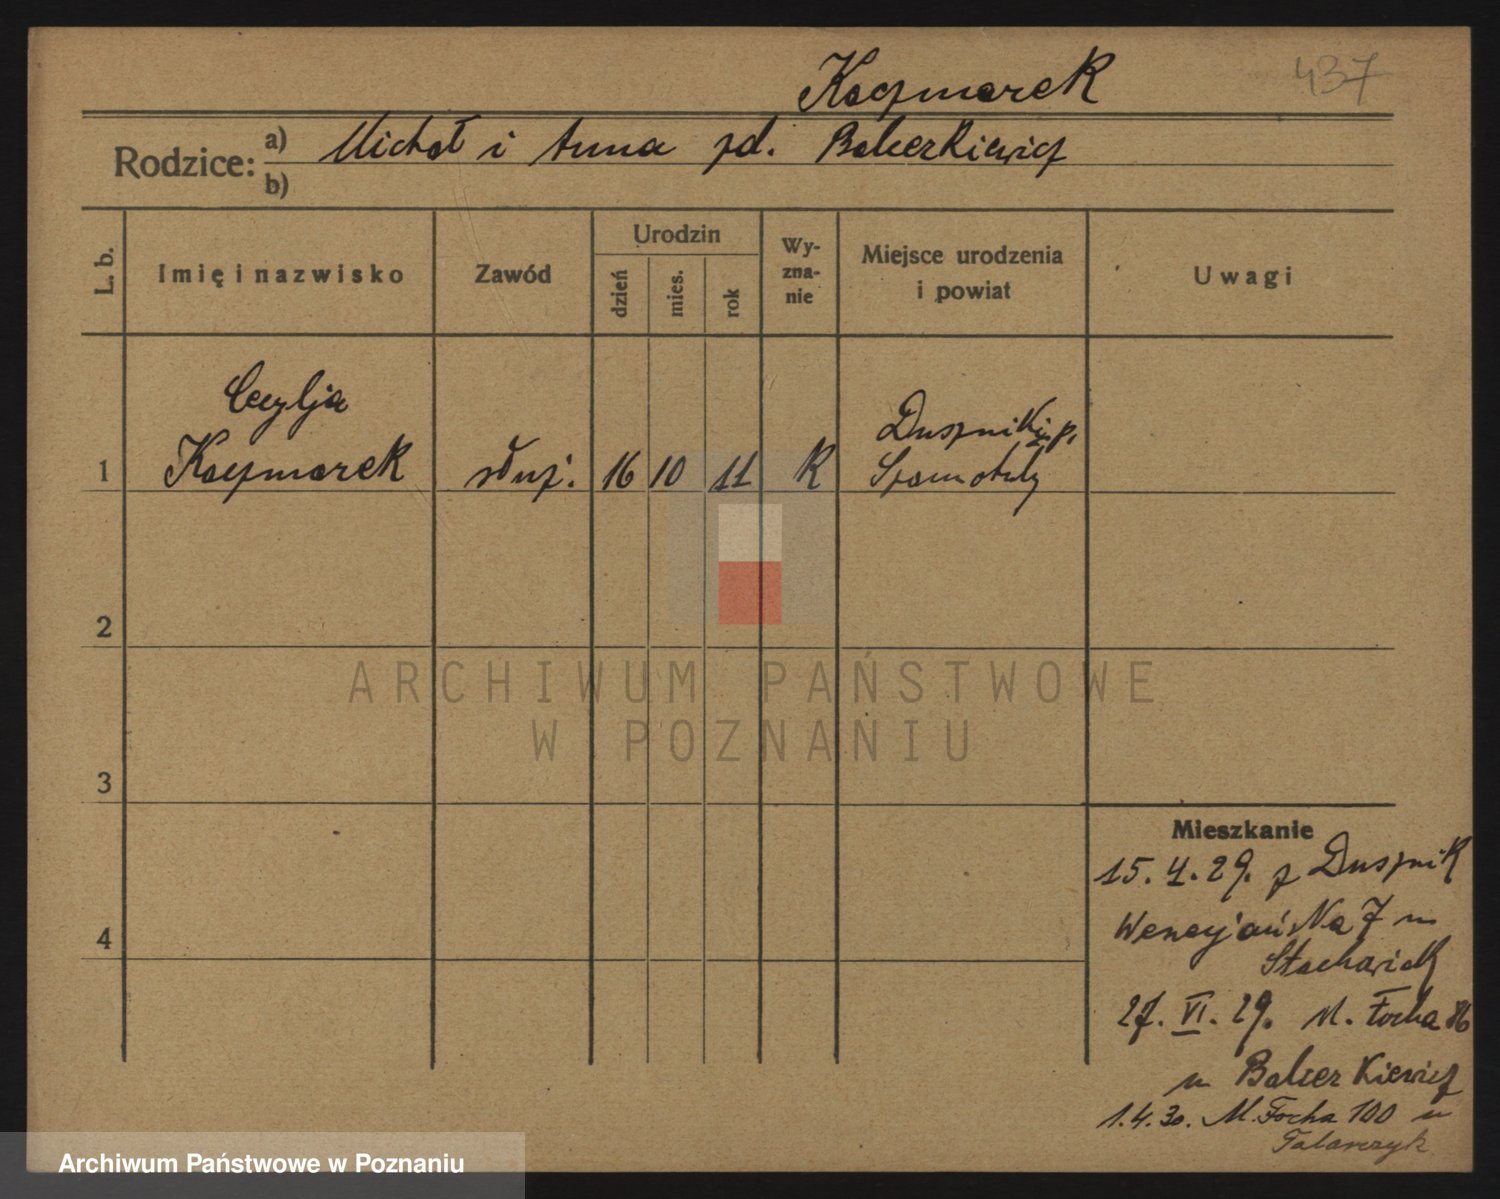 Kaczmarek
437
Rodzice:
a) Michał i Anna zd. Balcerkiewicz
b)
L. b.
Imię i nazwisko
Zawód
Urodzin
dzień
mies.
rok
Wy-
zna-
nie
Miejsce urodzenia
i powiat
Uwagi
Cecylja
Kaczmarek
1
służ.
16
10
11
R
Duszniki p.
Szamotuły
2
3
4
ARCHIWUM PAŃSTWOWE
W POZNANIU
Mieszkanie
15. 4. 29. z Dusznik
Wenecjańska 7 u
Stachowiak
27. VI. 29. M. Focha 86
u Balcerkiewicz
1.4.30. M. Focha 100 u
Talarczyk
Archiwum Państwowe w Poznaniu